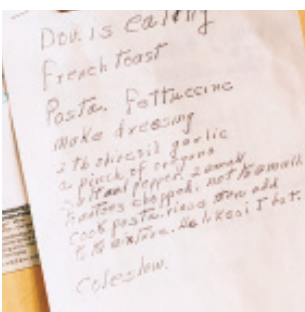 Dov. is eating
french toast
Pasta. Fettuccine
make dressing
2 tb olive oil garlic
a pinch of oregano
salt and pepper. 2 small
tomatoes chopped. not to small
cook pasta. rinse then add
to the mixture. He likes it hot.
Coleslaw.